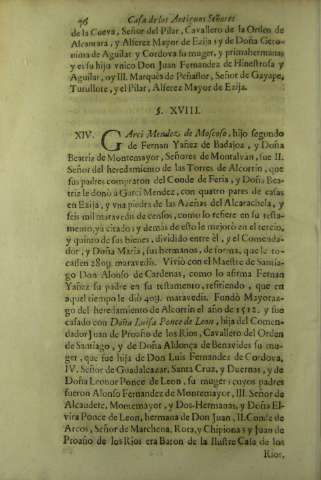 76 Casa de los Antiguos Señores
de la Cueva, Señor del Pilar, Cavallero de la Orden de
Alcantara, y Alferez Mayor de Ezija; y de Doña Gero-
nima de Aguilar y Cordova su muger, y primahermana;
y es su hija vnico Don Juan Fernandez de Hinestrosa y
Aguilar, oy III. Marqués de Peñaflor, Señor de Gayape,
Turullote, y el Pilar, Alferez Mayor de Ezija.
§. XVIII.
XIV. Garci Mendez de Moscoso, hijo segundo
de Fernan Yañez de Badajoz, y Doña
Beatriz de Montemayor, Señores de Montalvan, fue II.
Señor del heredamiento de las Torres de Alcorrin, que
sus padres compraron del Conde de Feria, y Doña Bea-
triz le donò à Garci Mendez, con quatro pares de casas
en Ezija, y vna piedra de las Azeñas del Alcarachela, y
seis mil maravedis de censos, como lo refiere en su testa-
mento, yà citado; y demàs de esto le mejorò en el tercio,
y quinto de sus bienes, dividido entre èl, y el Comenda-
dor, y Doña Maria, sus hermanos, de forma, que le to-
casen 280y. maravedis. Viviò con el Maestre de Santia-
go Don Alonso de Cardenas, como lo afirma Fernan
Yañez su padre en su testamento, refiriendo, que en
aquel tiempo le diò 40y. maravedis. Fundò Mayoraz-
go del heredamiento de Alcorrin el año de 1512. y fue
casado con Doña Luisa Ponce de Leon, hija del Comen-
dador Juan de Proaño de los Rios, Cavallero del Orden
de Santiago, y de Doña Aldonça de Benavides su mu-
ger, que fue hija de Don Luis Fernandez de Cordova,
IV. Señor de Guadalcazar, Santa Cruz, y Duernas, y de
Doña Leonor Ponce de Leon, su muger: cuyos padres
fueron Alonso Fernandez de Montemayor, III. Señor de
Alcaudete, Montemayor, y Dos-Hermanas, y Doña El-
vira Ponce de Leon, hermana de Don Juan, II. Conde de
Arcos, Señor de Marchena, Rota, y Chipiona; y Juan de
Proaño de los Rios era Baron de la Ilustre Casa de los
Rios,